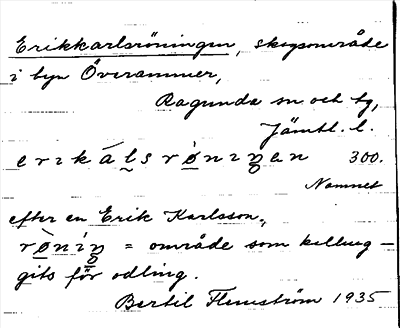 Erikkarlsröningen, skogsområde
i byn Överammer,
Ragunda sn och tg,
Jämtl. l.
erikálsrøniŋen 300.
Namnet
efter en Erik Karlsson,
rø̀níŋ = område som kallhug-
gits för odling.
Bertil Flemström 1935